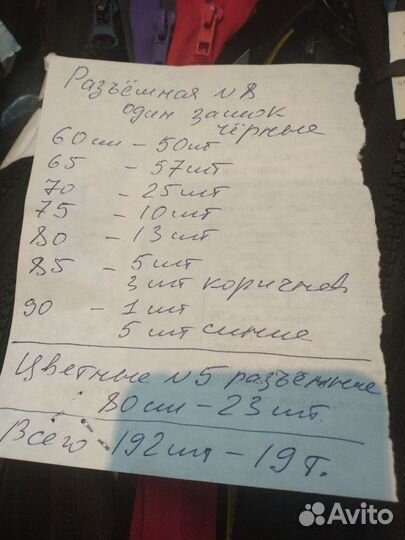 Разъёмная N8
один замок
чёрные
60см - 50шт
65 - 57шт
70 - 25шт
75 - 10шт
80 - 13шт
85 - 5шт
3шт коричнев
90 - 1шт
5шт синие
Цветные N5 разъёмные
80см - 23шт.
Всего - 192шт - 19т.
Avito